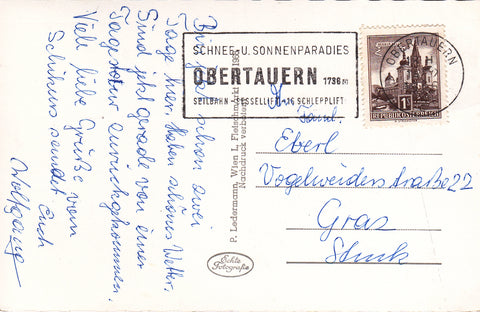 Bin jetzt schon zwei
Tage hier. Haben schönes Wetter.
Sind jetzt grade von einer
Tagstour zurückgekommen.
Viele liebe Grüße vom
Schikurs sendet Euch
Wolfgang
SCHNEE- U. SONNENPARADIES
OBERTAUERN 1738 m
SEILBAHN - SESSELLIFT - 16 SCHLEPPLIFT
OBERTAUERN
1S
REPUBLIK ÖSTERREICH
P. Ledermann, Wien I., Fleischmarkt
Nachdruck verboten
Echte
Fotografie
Faml.
Eberl
Vogelweiderstraße 22
Graz
Stmk